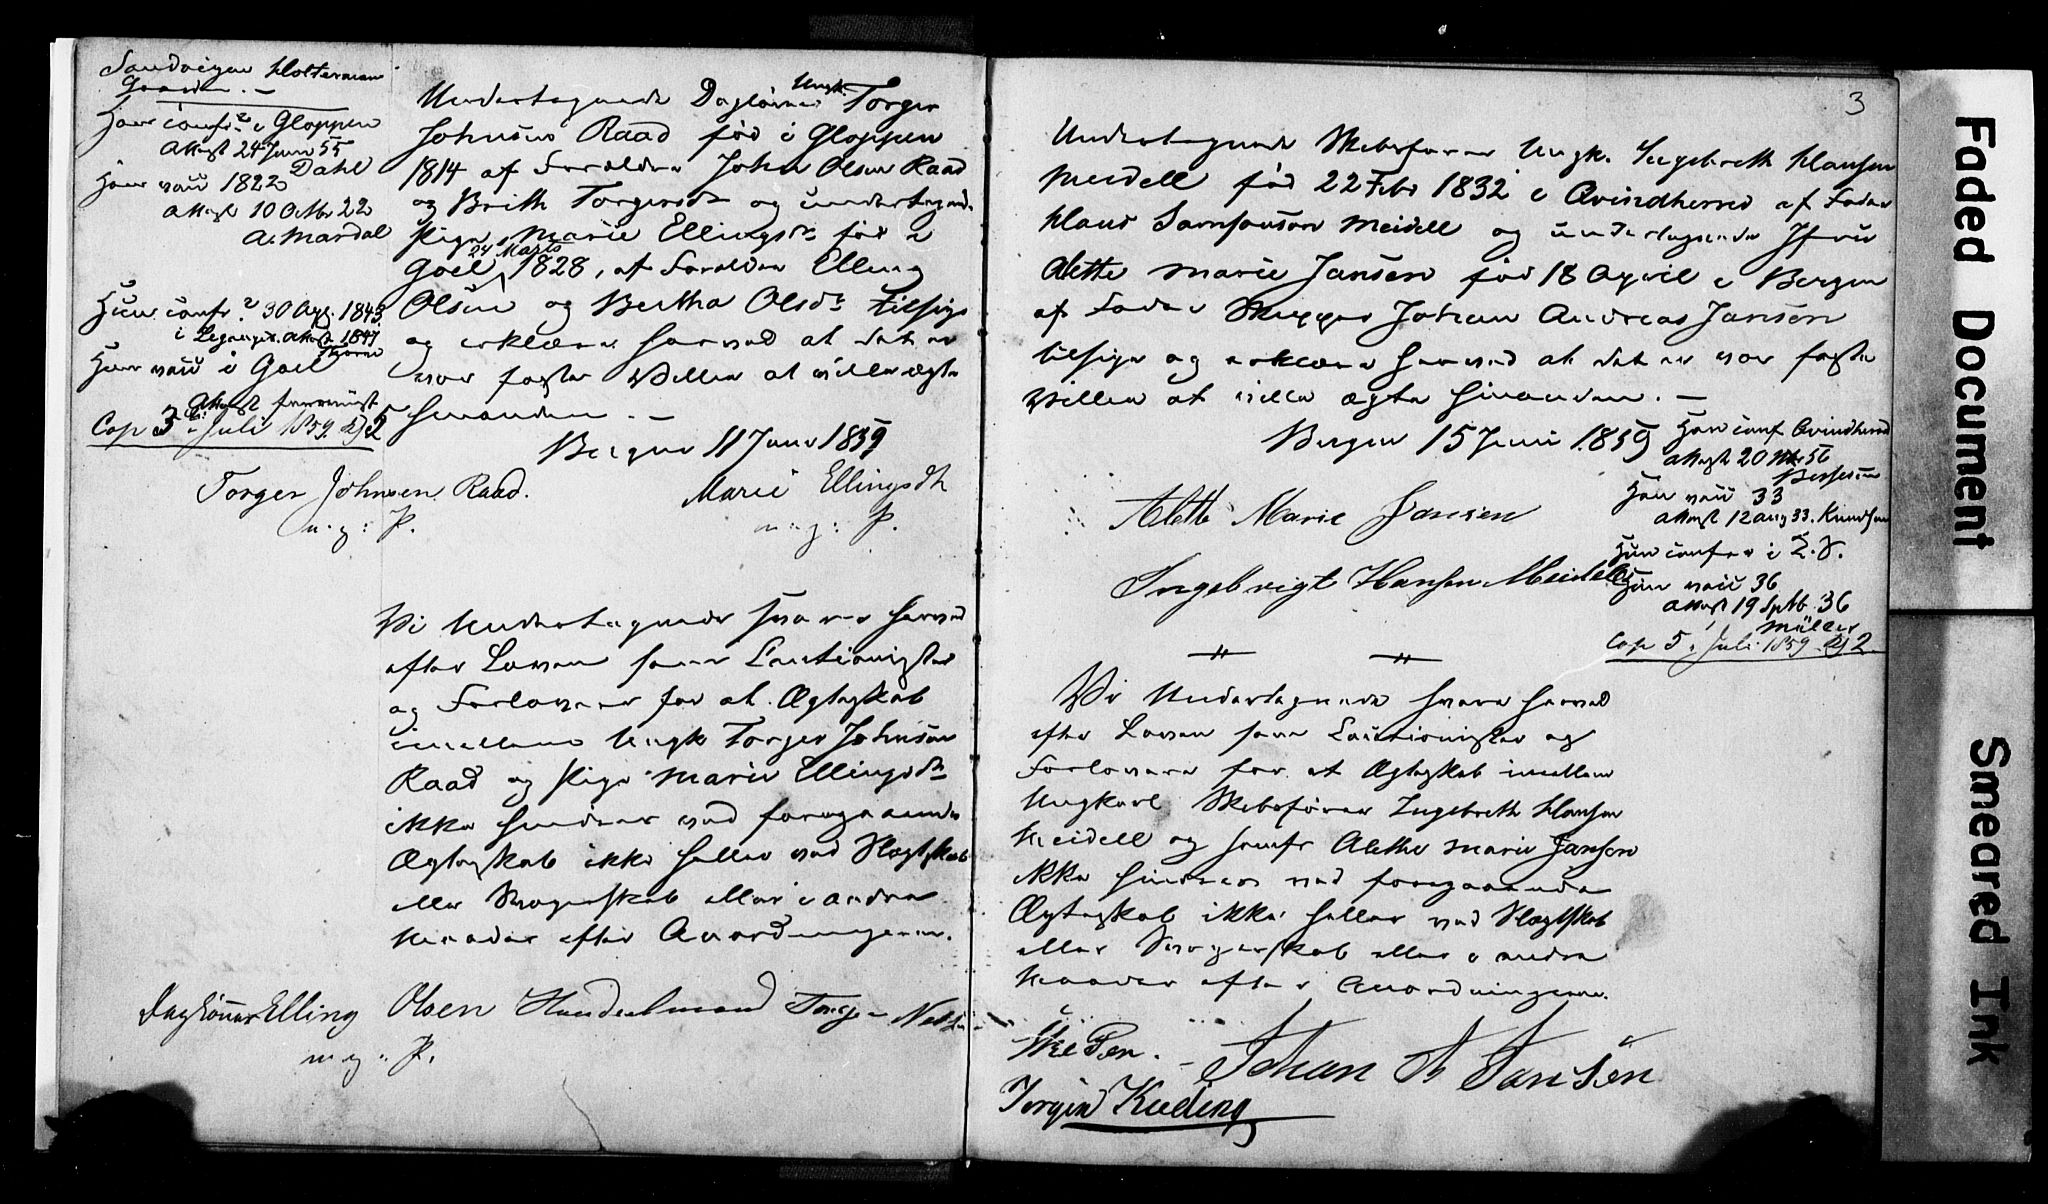 Sandvigen Holterman
Gaarden. —
Han conf. i Gloppen
Attest 24 Juni 55
Dahl
Han vacc 1822
Attest 10 Octbr 22
A. Mardal
Hun conf. 30 Apg. 1843
i Leganger. Attest 1847
Hun vacc i Goel
Attest
Cop 3 Juli 1859. 2
Undertegnede Dagleier Ungk. Torger
Johnsen Raad fød i Gloppen
1814 af Forældre John Olsen Raad
og Brith Torgersdr og undertegnede
Pige Marie Ellingsdr fød i
24 Marts
Goel 1828, af Forældre Elling
Olsen og Bertha Olsdr tilsige
og erklærer herved at det er
vor faste Villie at ville ægte
hinanden. —
Bergen 11 Juni 1859
Torger Johnsen Raad.
m. g: P.
Marie Ellingsdtr
m: g: P.
Vi Undertegnede svarer herved
efter Loven som Cautionister
og Forlovere for at Ægteskab
imellem Ungk Torger Johnsen
Raad og Pige Marie Ellingsdr
ikke hindrer ved foregaaende
Ægteskab ikke heller ved Slægtskab
eller Svogerskab eller i andre
Maader efter Anordningerne.
Dagleier Elling Olsen Handelmand Torger Nels
m. g: P.
3
Undertegnede Skibsfører Ungk. Ingebreth Hansen
Meidell fød 22 Febr 1832 i Qvindherred af Fader
Hans Samsonson Meidell og undertegnede Jfru
Alette Marie Jansen fød 18 April i Bergen
af Fader Skipper Johan Andreas Jansen
tilsige og erklære herved at det er vor faste
Villie at ville ægte hinanden. —
Bergen 15 Juni 1859
Han conf Qvindherred
Attest 20 56
Han vacc 33
Attest 12 Aug 33. Knudsen
Hun confr i
Hun vacc 36
Attest 19 Septb. 36
Müller
Cop 5 Juli 1859 2
Alette Marie Jansen
Ingebrigt Hansen Meidell
Vi Undertegnede svare herved
efter Loven som Cautionister og
Forlovere for at Ægteskab imellem
Ungkarl Skibsfører Ingebreth Hansen
Meidell og Jomfr Alethe Marie Jansen
ikke hindres ved foregaaende
Ægteskab ikke heller ved Slægtskab
eller Svogerskab eller i andre
Maader efter Anordningerne.
Johan A Jansen
Jørgen
Faded Document
Smeared Ink